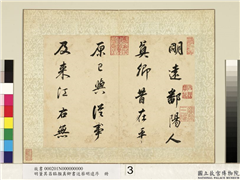 明遠鄱陽人
真卿昔在平
原已與從事
及來江右無
明董其昌臨顏真卿書送蔡明遠序 冊
3
國立故宮博物院